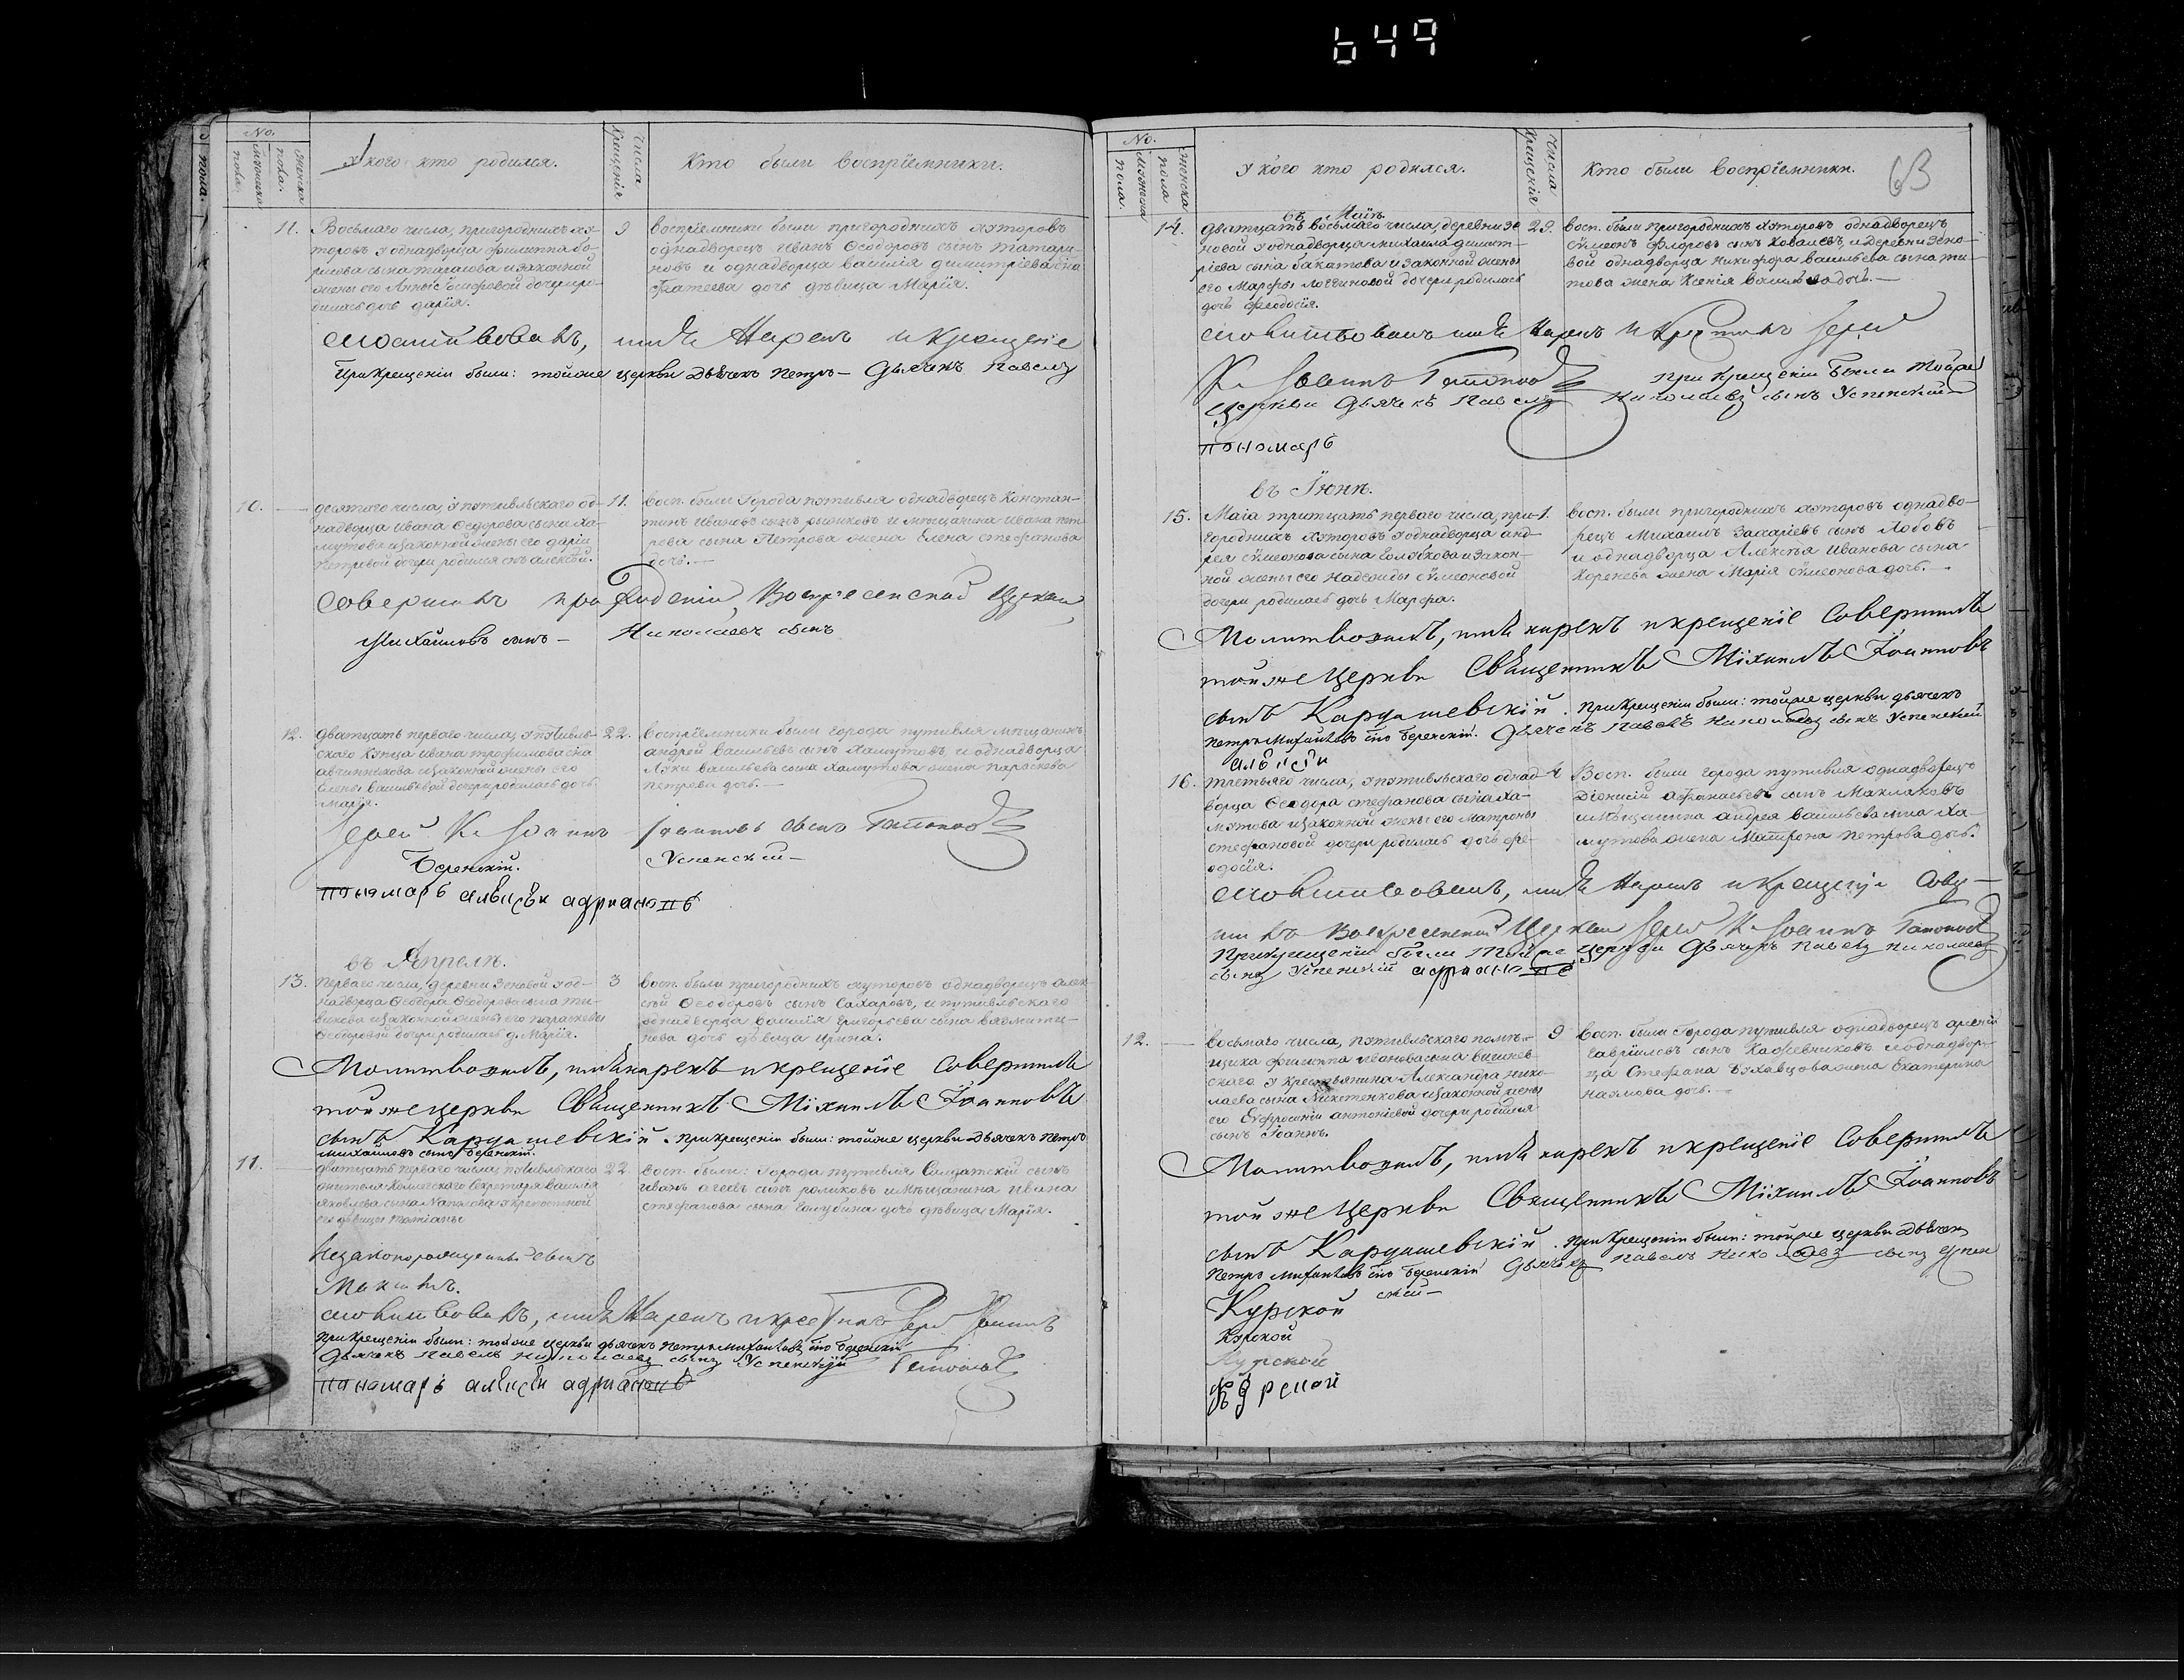 649
No.
мужеска пола.
женска пола.
У кого кто родился.
Числа Крещенія
Кто были воспріемники.
11. Восьмаго числа, пригородныхъ ху-
торовъ у однадворца филиппа бо-
рисова сына тараѳова и законной
жены его Анны Іосифовой дочери ро-
дилась дочь дарїя.
9
воспрїемники были пригородныхъ хуторовъ
однадворецъ иванъ Ѳеодоровъ сынъ татари-
новъ и однадворца василія димитріева сна
Фатеева дочь дѣвица Марїя.
молитвовалъ, имя Нарекъ и Крещеніе
При Крещеніи были: тойже церкви дьячекъ Петръ — Дьячекъ Павелъ
10. десятаго числа, у путивльскаго од-
надворца ивана Ѳедорова сына ха-
мутова и законной жены его дарїи
Петровой дочери родился снъ алексѣй.
11.
восп. были Города путивля однадворецъ Констан-
тинъ ивановъ сынъ рыжковъ и мѣщанина ивана пет-
рова сына Петрова жена Елена стефанова
дочь.
совершилъ Воскресенской Церкви
Михайловъ сынъ — Николаевъ сынъ
12. дватцать перваго числа, у путивль-
скаго купца ивана трофимова сна
авчинникова и законной жены его
елены васильевой дочери родилась дочь
Марїя.
22.
воспрїемники были города путивля мѣщанинъ
андрей васильевъ сынъ хамутовъ, и однадворца
Луки васильева сына хамутова жена параскева
петрова дочь.
Іерей Іоаннъ Іоанновъ сынъ Гапоновъ
Беренскій. Успенскій —
пономарь алеѯѣи
въ Апрелѣ.
13. Перваго числа, деревни Зеновой у од-
надворца Ѳеодора Ѳеодорова сына ти-
викова и законной жены его параскевы
Ѳеодоровой дочери родилась д. Марїя.
3
восп. были пригородныхъ хуторовъ однадворецъ алек-
сѣй Ѳеодоровъ сынъ Сахаровъ, и путивльскаго
однадворца василїя григорьева сына вязмити-
нова дочь дѣвица ирина.
Молитвовалъ, имя нарекъ и крещенїе Совершилъ
той же Церкви Священникъ Мїхаилъ Іоанновъ
сынъ Кардашевскїй. При крещеніи были: тойже церкви дьячекъ Петръ
михайловъ сынъ беренскій.
11. дватцать перваго числа, путивльскаго
жителя Коллежскаго Секретаря василїя
яковлева сына у крепостной
его дѣвицы татїаны
незаконорожденный сынъ
Максимъ.
22
восп. были: Города путивля Солдатскїй сынъ
иванъ агеевъ сынъ роликовъ и мѣщанина ивана
стефанова сына голубина дочь дѣвица Марїя.
молитвовалъ, имя Нарекъ и крестилъ Іерей Іоаннъ
При крещеніи были: тойже церкви дьячекъ Петръ Михайловъ снъ беренскій
Дьячекъ Павелъ Николаевъ сынъ Успенскій Гапоновъ
пономарь алеѯѣи
No.
мужеска пола.
женска пола
У кого кто родился.
Числа Крещенія
Кто были воспріемники.
63
въ Маїѣ
14. дватцать восьмаго числа, деревни зе-
новой у однадворца михаила димит-
рїева сына бакатова и законной жены
его Марфы логгиновой дочери родилась
дочь феодосїя.
29.
восп. были пригородныхъ хуторовъ однадворецъ
сѵмеонъ флоровъ сынъ ковалевъ, и деревни Зено-
вой однадворца никифора васильева сына ти-
това жена Ксенїя васильева дочь.
молитвовалъ имя Нарекъ и Крестилъ Іерей
Іоаннъ Гапоновъ При Крещеніи были тойже
церкви Дьячекъ Павелъ Николаевъ сынъ Успенскій
пономарь
въ Їюнѣ.
15. Маїа тритцать перваго числа, при-
городныхъ хуторовъ у однадворца анд-
рея сѵмеонова сына голякова и закон-
ной жены его Надежды сѵмеоновой
дочери родилась дочь Марфа.
1.
восп. были пригородныхъ хуторовъ однадво-
рецъ Михаилъ Захарїевъ сынъ Лобовъ
и однадворца Алексѣя иванова сына
Коренева жена Марїя сѵмеонова дочь.
Молитвовалъ, имя нарекъ и крещенїе Совершилъ
той же Церкви Священникъ Мїхаилъ Іоанновъ
сынъ Кардашевскїй. При Крещеніи были: тойже церкви дьячекъ
Петръ Михайловъ снъ Беренскій. Дьячекъ Павелъ Николаевъ сынъ Успенскій
алеѯѣи
16. третьяго числа, у путивльскаго однад-
ворца Ѳеодора стефанова сына ха-
мутова и законной жены его Матроны
стефановой дочери родилась дочь фе-
одосїя.
4
Восп. были города путивля однадворецъ
Дїонисїй афанасьевъ сынъ Маклаковъ
и мѣщанина андрея васильева сына ха-
мутова жена Матрона Петрова дочь.
молитвовалъ, имя Нарекъ и Крещенїе Совер-
шилъ Воскресенской Церкви Іерей Іоаннъ Гапоновъ
При крещеніи были тойже церкви Дьячекъ Павелъ николаевъ
сынъ Успенскій
12. восьмаго числа, путивльскаго помѣ-
щика филиппа иванова сына вишнев-
скаго у крестьянина Александра нико-
лаева сына Никитенкова и законной жены
его Евфросинїи антонїевой дочери родился
сынъ Іоаннъ.
9
восп. были Города путивля однадворецъ арсенїй
гаврїиловъ сынъ Кожевниковъ и однадвор-
ца Стефана жена Екатерина
наумова дочь.
Молитвовалъ, имя нарекъ и крещенїе Совершилъ
той же Церкви Священникъ Мїхаилъ Іоанновъ
сынъ Кардашевскїй. При Крещеніи были: тойже церкви дьячекъ
Петръ Михайловъ снъ беренскій Дьячекъ Павелъ Николаевъ сынъ Успен
скій —
Курской
Курской
Курской
Курской